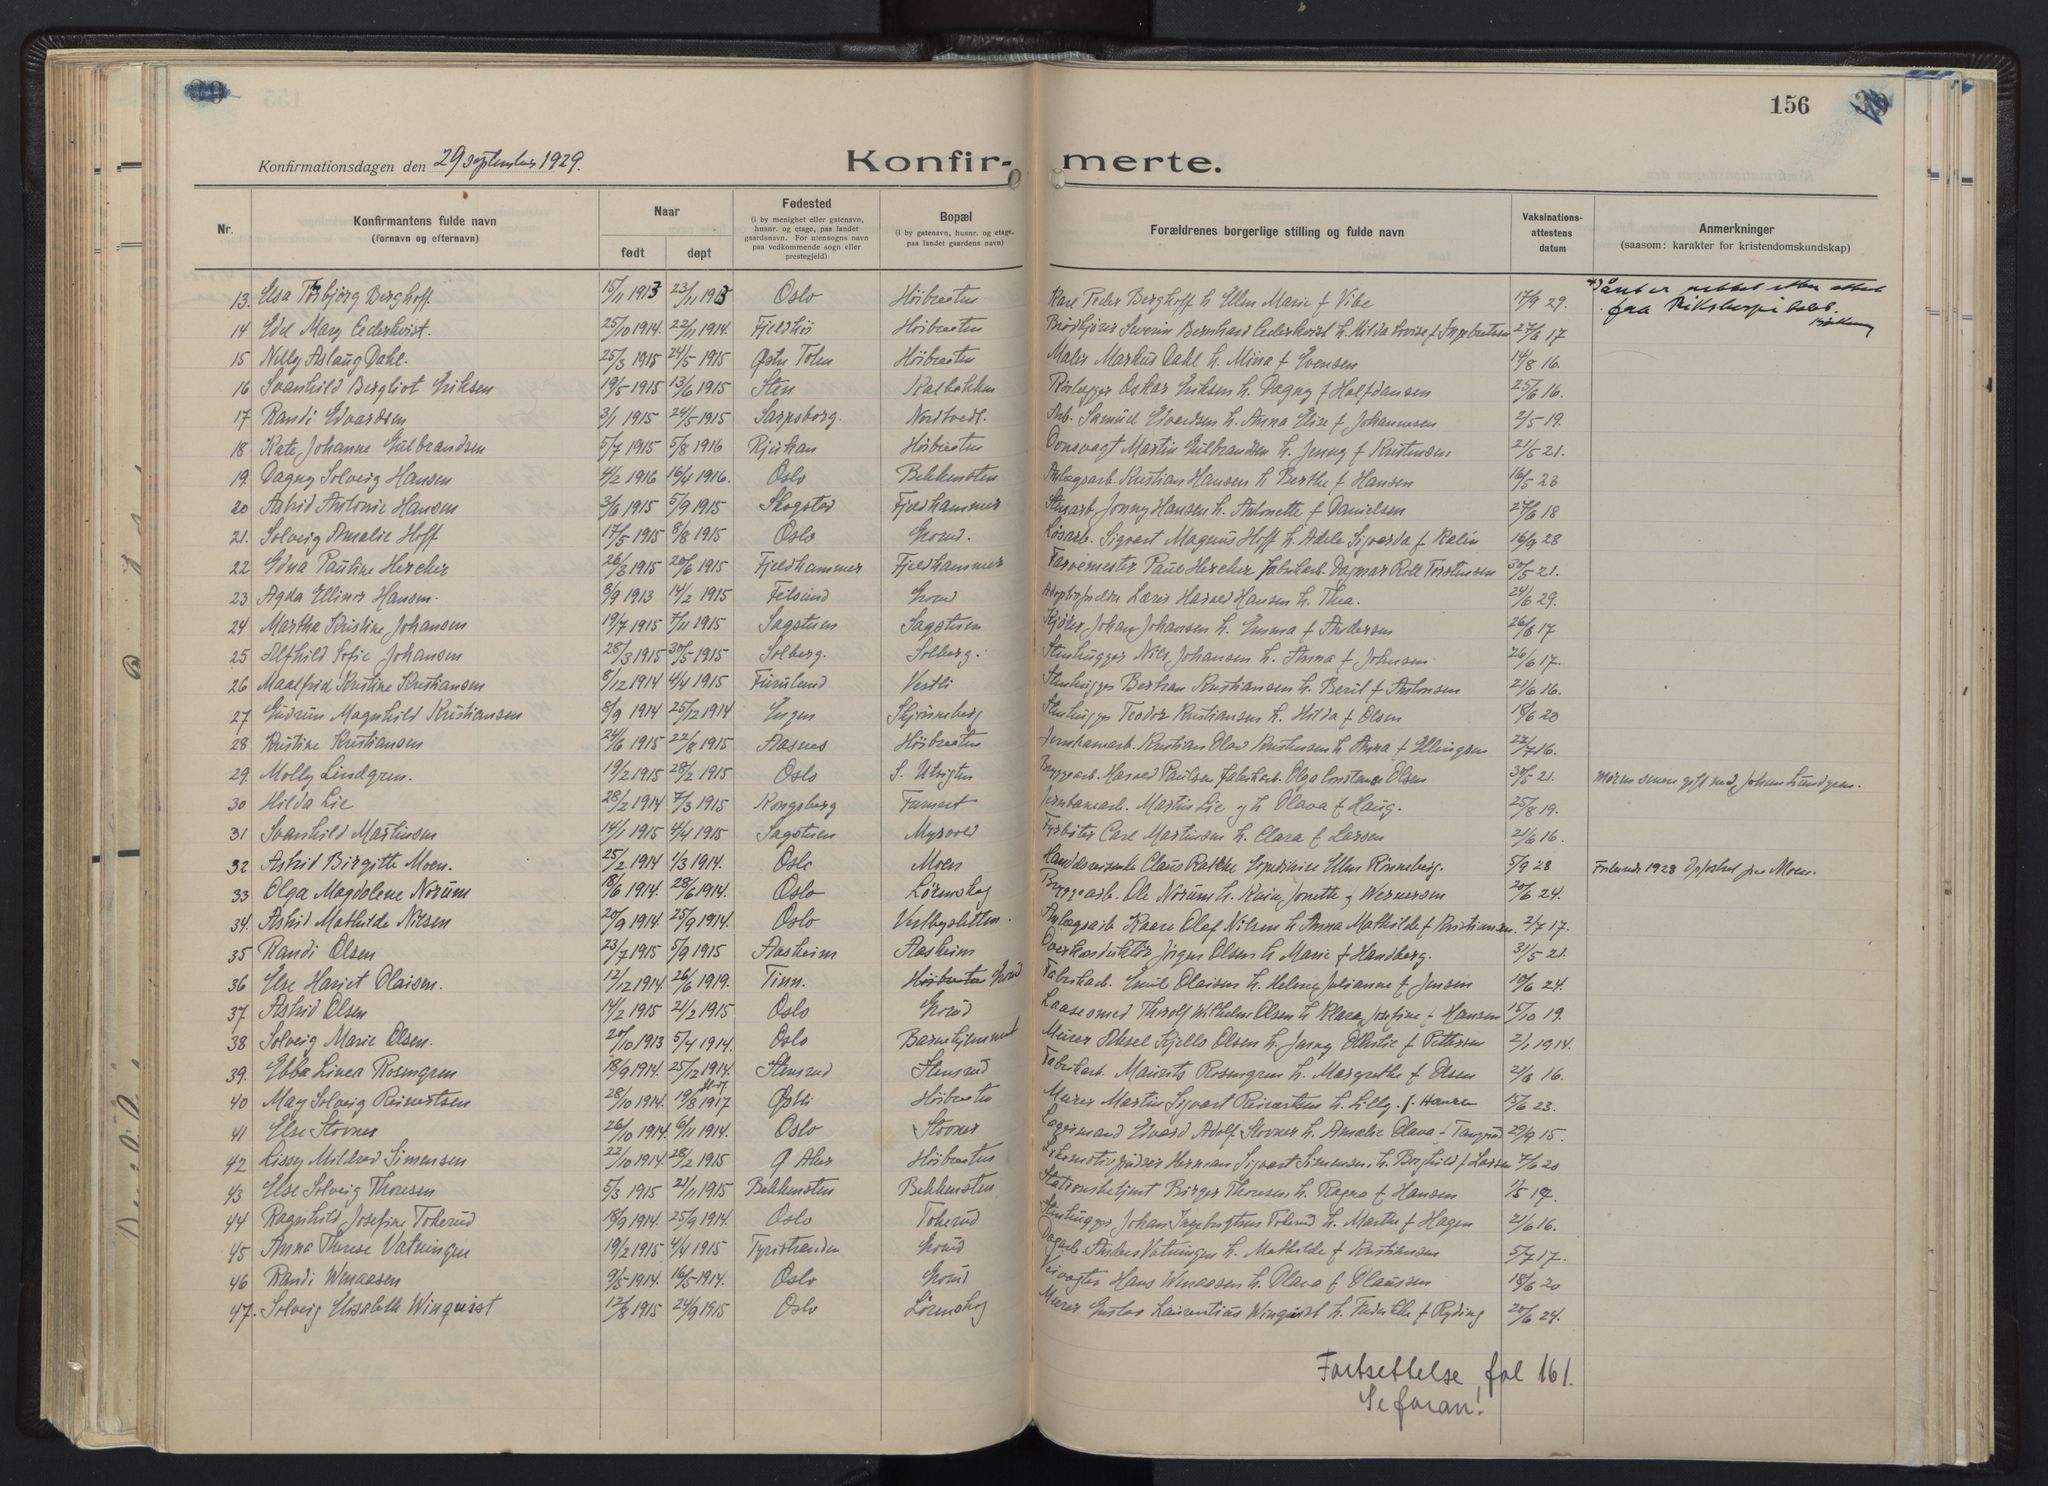 156
Konfirmationsdagen den 29 september 1929.
Konfir- merte.
Nr.
Konfirmantens fulde navn
(fornavn og efternavn)
Naar
født
døpt
Fødested
(i by menighet eller gatenavn,
husnr. og etage, paa landet
gaardsnavn. For utensogns navn
paa vedkommende sogn eller
prestegjeld)
Bopæl
(i by gatenavn, husnr. og etage,
paa landet gaardens navn)
Forældrenes borgerlige stilling og fulde navn
Vaksinations-
attestens
datum
Anmerkninger
(saasom: karakter for kristendomskundskap)
13. Elsa Torbjörg Berghoff. 15/11 1913 23/11 1913 Oslo Höibraaten Karl Peder Berghoff h. Ellen Marie f Vibe 17/9 29.
fra Rikshospitalet
14 Edel Mary Cederkvist. 25/10 1914. 22/11 1914. Höibraaten Bernhard Cederkvist h. Hilda Lovise f Ingebretsen 27/6 17
15 Nelly Aslaug Dahl. 25/3 1915 24/5 1915 Höibraaten Maler Markus Dahl h. Mina f Evensen 14/8 16.
16 Svanhild Bergliot Eriksen 19/5 1915 13/6 1915 Sten Kalbakken Rörlegger Oskar Eriksen h. Dagny f Halfdansen 25/6 16.
17 Randi Edvardsen 3/1 1915 24/5 1915 Sarpsborg. Nordtvedt. Arb. Samuel Edvardsen h. Anna Elise f Johannesen 2/5 19.
18 Kate Johanne Gulbrandsen 5/7 1915 5/8 1916 Rjukan Höibraaten Martin Gulbrandsen h. Jenny f Kristensen 21/5 21.
19. Dagny Solveig Hansen 4/2 1916 16/4 1916. Oslo Bekkensten Anlægsarb. Kristian Hansen h Berthe f Hansen 16/5 23
20 Astrid Antonie Hansen 3/6 1915 5/9 1915 Skogstad Fjeldhammer Stenarb. Jonny Hansen h. Antonette f Danielsen 27/6 18
21. Solveig Amalie Hoff 17/5 1915 8/8 1915 Oslo Grorud. Løsarb. Sigvart Magnus Hoff h. Adele Sigvarda f Kalin 16/9 28
22 Edna Pauline Hercher 26/3 1915 20/6 1915 Fjeldhammer Fjeldhammer Farvemester Paul Hercher fabrikarb. Dagmar Roll Torstensen 30/5 21.
23 Agda Ellinor Hansen. 8/9 1913 14/2 1915 Grorud Adoptivforeldre Lars Harald Hansen h. Thea. 24/6 29.
24 Martha Kristine Johansen 19/7 1915 7/11 1915 Sagstuen Sagstuen Kjører Johan Johansen h. Emma f Andersen 26/6 17
25 Alfhild Sofie Johansen 28/3 1915 30/5 1915 Solberg. Solberg. Stenhugger Nils Johansen h. Anna f Johnsen 26/6 17.
26 Maalfrid Kristine Kristiansen 8/12 1914 4/4 1915 Furulund Vestli Stenhugger Kristiansen h. Beril f Antonsen 21/6 16.
27 Gudrun Magnhild Kristiansen 8/9 1914 25/12 1914 Engen Skjönneberg Stenhugger Teodor Kristiansen h. Hilda f Olsen 18/6 20
28 Kristine Kristiansen 24/6 1915 22/8 1915 Aasnes Höibraaten Jernbanearb. Kristian Olav Kristiansen h Anna f Ellingsen 22/7 16.
29. Molly Lindgren. 19/2 1915 28/2 1915 Oslo S. Utsigten Byggearb. Harald Paulsen fabrikarb. Olga Constance Olsen 30/5 21. Moren senere gift med Johan Lindgren.
30 Hilda Lie 28/2 1914 7/3 1915 Kongsberg Furuset Jernbanearb. Martin Lie og h Olava f Haug. 25/8 19.
31 Svanhild Martinsen 14/1 1915 4/4 1915 Sagstuen Myrvold Fyrböter Carl Martinsen h. Clara f Larsen 21/6 16.
32 Astrid Birgitte Moen. 25/2 1914 1/3 1914. Oslo Moen Claus Ratche Ellen Rönneberg. 5/9 28 1928 Moen.
33 Olga Magdalene Norum 18/6 1914. 28/6 1914. Oslo Lörenskog Byggearb. Ole Norum h. Karin Jonette f Wernersen 20/6 24.
34. Astrid Mathilde Nilsen 20/9 1914. 25/9 1914. Oslo Anlægsarb Kaare Olaf Nilsen h Anna Mathilde f Kristiansen. 2/7 17.
35 Randi Olsen 23/7 1915 5/9 1915 Aasheim Aasheim Overkonduktör Jörgen Olsen h Marie f Handberg. 31/5 21.
36 Else Hariet Olaisen. 12/12 1914. 26/6 1919. Tinn. Höibraaten Grorud Fabrikarb. Emil Olaisen h. Helene Julianne f Jensen 10/6 24.
37. Astrid Olsen 14/2 1915 21/2 1915 Oslo Grorud Laasesmed Thorolf Wilhelm Olsen h Klara Josefine f Hansen 15/10 19.
38 Solveig Marie Olsen. 20/10 1913 5/4 1914. Oslo Barnehjemmet Murer Aksel Kjells Olsen h. Jenny f Pettersen 2/1 1914.
39. Ebba Linea Rosengren 18/9 1914. 25/12 1914. Stensrud Stensrud Fabrikarb. Maurits Rosengren h. Margrethe f Olsen 21/8 16.
40 May Solveig Reinertsen 28/10 1914. 19/8 1917 Höibraaten Murer Martin Sigvart Reinertsen h. Lilly. f. Hansen 15/6 23.
41 Else Stovner 26/10 1914. 6/11 1914. Oslo Stovner Lagermand Edvard Adolf Stovner h. Amalie Olava f Tangrud 29/9 15.
42 Lissy Mildred Simensen 22/10 1914. 28/2 1915 Ø Aker Höibraaten Lokomotivfyrböter Herman Sigvart Simensen, h. Borghild f Larsen 7/6 20
43 Else Solveig Thoresen 5/3 1915 21/11 1915 Bekkensten Bekkensten Stationsbetjent Birger Thoresen h. Ragna f Hansen 1/5 17.
44 Ragnhild Josefine Tokerud 18/9 1914. 25/9 1914. Oslo Tokerud Stenhugger Johan Ingebrigtsen Tokerud h. Marthe f Hagen 21/6 16.
45 Anna Therese Vatningen 19/2 1915 4/4 1915 Tyristranden Grorud Anders Vatningen h. Mathilde f Kristiansen 5/7 17.
46 Randi Wenaasen 9/5 1914. 16/5 1914. Oslo Grorud Veivogter Hans Wenaasen h. Olava f Olaussen 18/6 20
47. Solveig Elisabeth Winquist 12/8 1915 24/9 1915 Oslo Lörenskog Murer Gustav Laurentius Winquist h. f Ryding 20/6 24.
Fortsettelse fol 161.
Se foran!